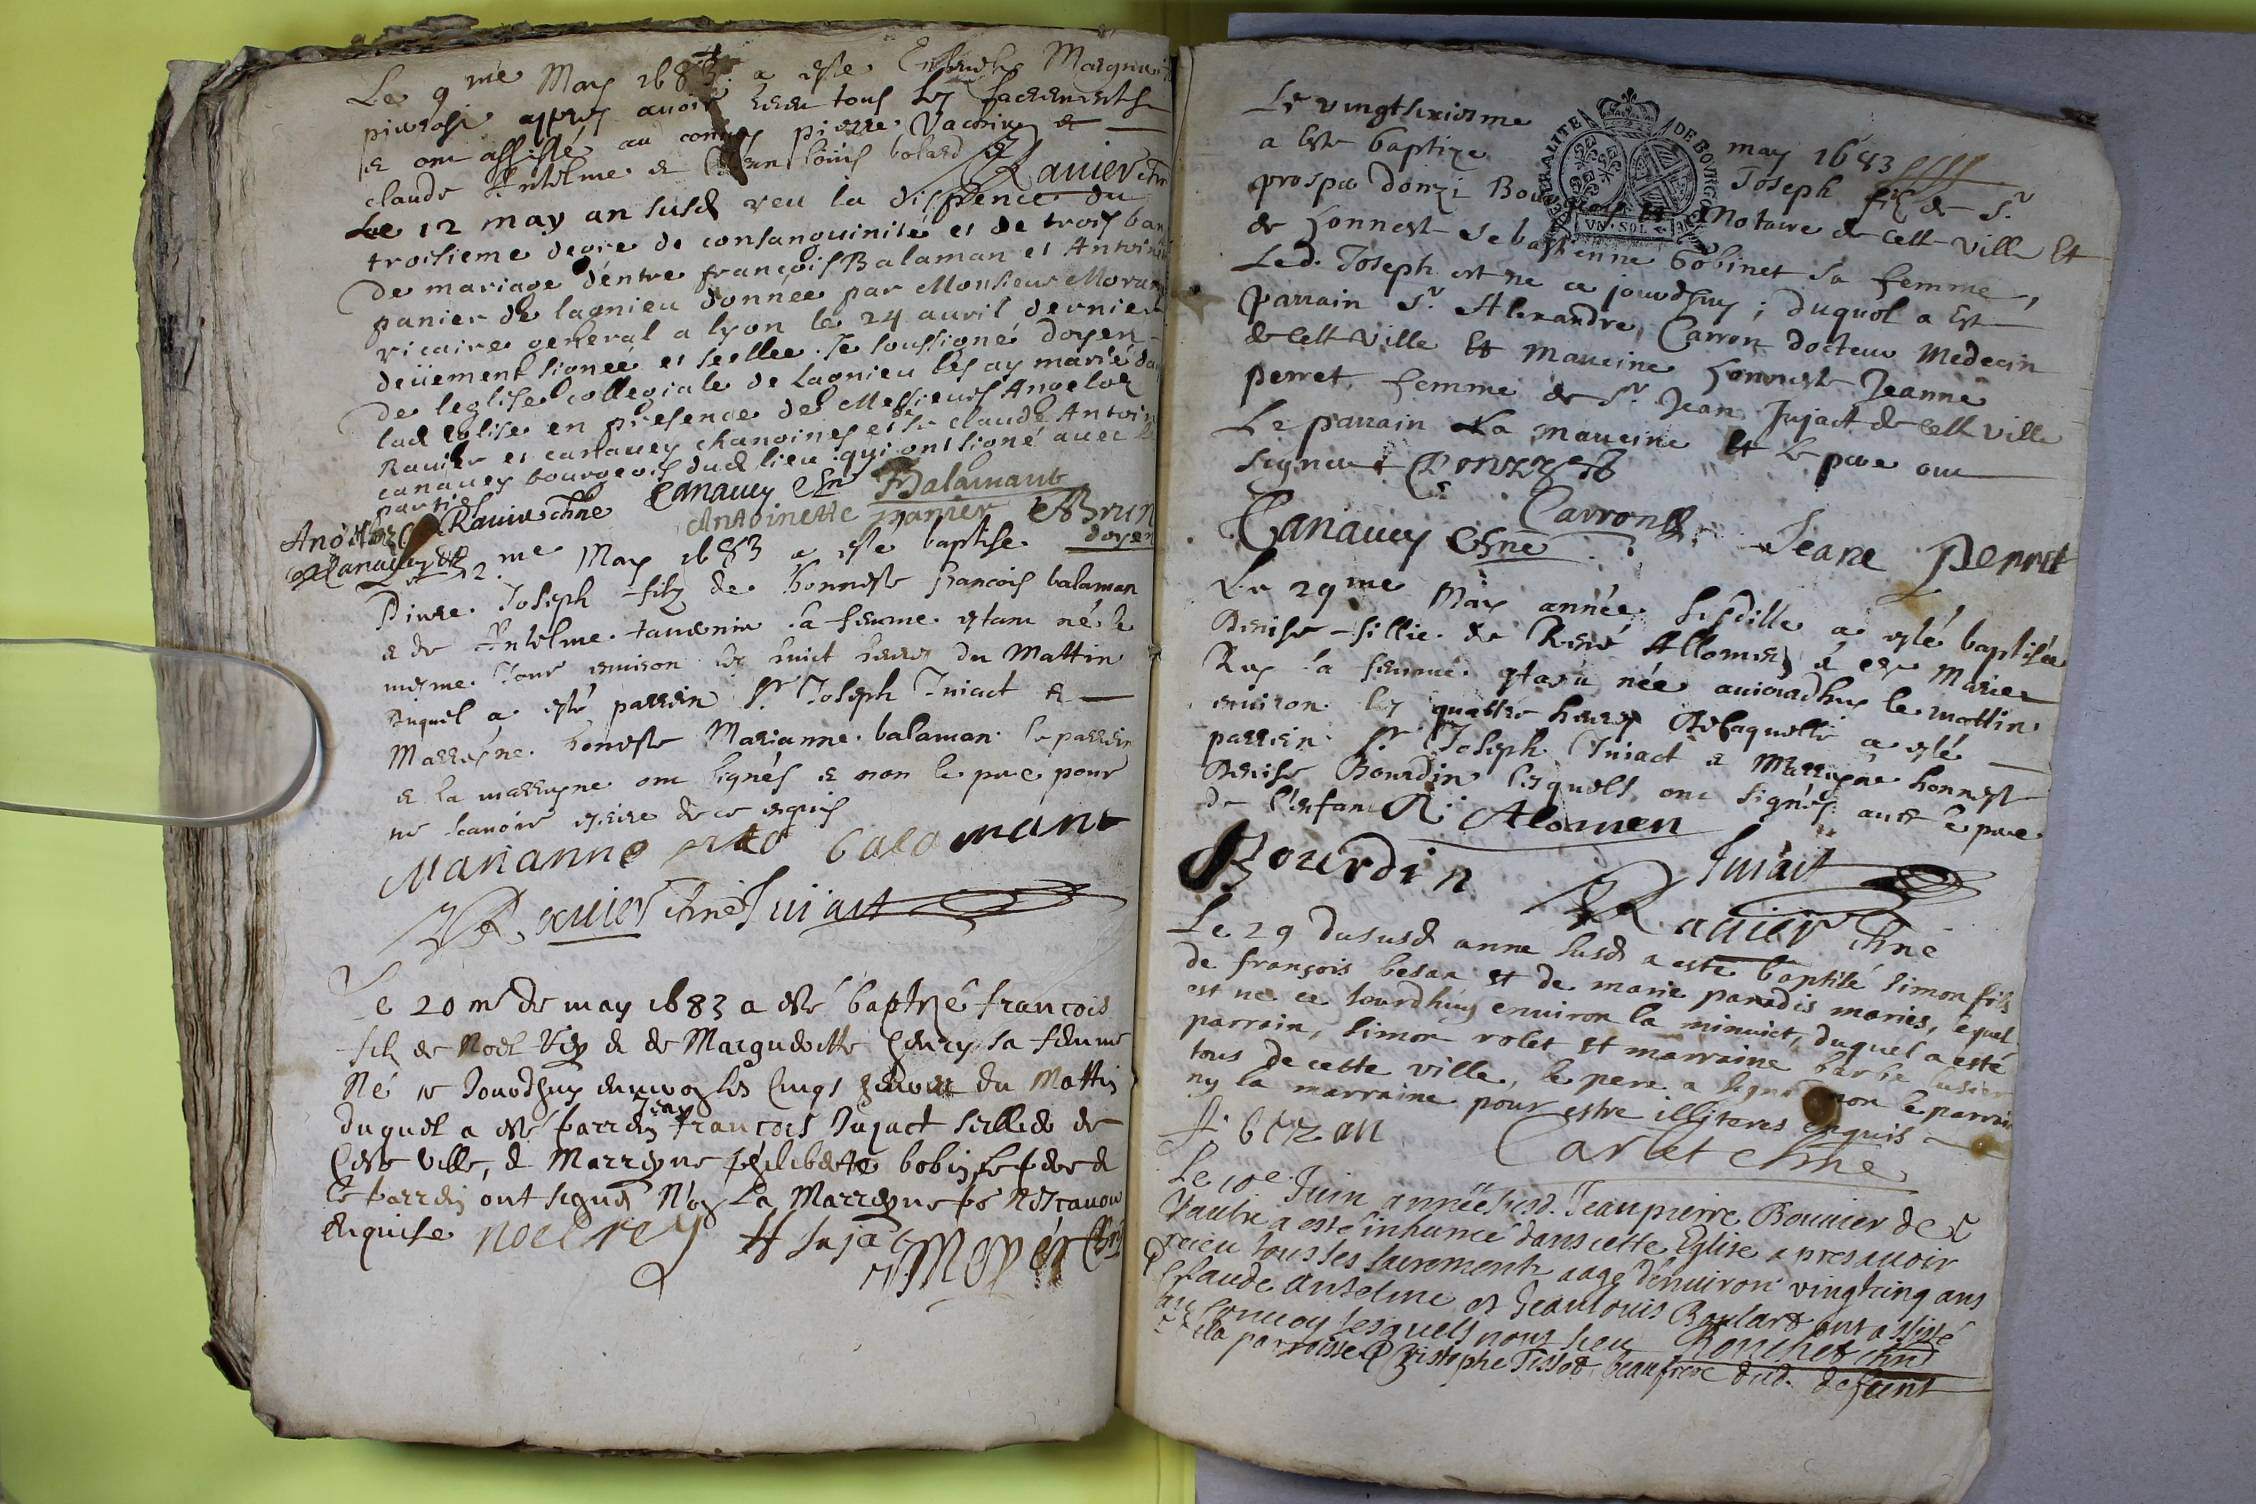 Le 9 me May 1683 a este
appres avoir receu tous les sacrements
et ont assisté au convoy pierre Vacoin et
claude Antelme et Jean louis bolard
Ravier chne
Le 12 may an susd veu la dispence du
troisieme degre de consanguinité et de trois ban
de mariage d'entre françois Balaman et Antoine
panier de lagnieu donnée par Monsieur Moran
vicaire general a lyon le 24 auril dernier
deüement signeé et seellee. Je soussigné doyen
de leglise collegiale de Lagnieu les ay marié da
lad eglise en presence de Messieurs Angelot
Rauier et canauey chanoines et de Sr claude Antoin
canauey bourgeois dud lieu qui ont signé auec les
parties
Rauier chne Canauey chne Balamant
Antoinette panier Brun
doyen
Le 12 me May 1683 a esté baptisé
Pierre Joseph filz de honneste francois balaman
e de Antelme sa femme estant né le
mesme Jour enuiron les huict heures du Mattin
duquel a esté parrein Sr Joseph Iniact e
Marreyne honeste Marianne balaman le parrein
e la marreyne ont signés e non le pere pour
ne scauoir escrire de ce enquis
Marianne balamant
Rauier chne Iuiact
Le 20 me de may 1683 a esté baptizé francois
filz de Noel Rey & de Margueritte sa femme
Né ce Jourdhuy enuiron les cinqs heures du Mattin
Duquel a esté parrein Jean francois Jujact de
ceste ville, & Marreyne bobin le pere &
le parrein ont signés Non La Marreyne pr ne scauoir
Enquise noel rey Jujac
Moyer
Le vingtsixiesme may 1683
GENERALITE DE BOURGOGNE
VN SOL
a Esté baptizé Joseph filz de Sr
prosper donzi Bourgeois et Notaire de cette ville Et
de honneste Sebastienne bobinet sa femme,
Led. Joseph est né ce jourdhuy; duquel a Esté
parrain Sr Alexandre Carron docteur Medecin
de cette ville Et Marreine honneste Jeanne
perret femme de Sr Jean Jujact de cette ville
Le parrain La marreine Et le pere ont
signé Donzy
Carron
Canauey chne Jeane Perret
Le 29 me May année susditte a esté baptisée
Denise fillie de René Allomen e de Marie
Rey sa femme estant née auiourdhuy le mattin
enuiron les quattre heures de laquelle a esté
parrein Sr Joseph Iniact e Marreyne honneste
Denise Bourdin lesquels ont signés auec le pere
de l'enfant R. Alomen
Bourdin Iuiact
Rauier chne
Le 29 dususd anne susd a esté baptisé simon fils
de françois besan et de marie paradis mariés, lequel
est né ce Jourdhuy enuiron la minuict, duquel a esté
parrain, simon rolet et marraine barbe
tous de cette ville, le pere a signé non le parrain
ny la marraine pour estre illiteres enquis
f. bezan Carlet chne
Le 10e Juin année susd. Jean pierre Bouuier de
Vaulx a esté inhumé dans cette Eglise apres auoir
receu tous les sacrements aagé d'enuiron vingtcinq ans
Claude Antelme et Jean louis Boulard ont assisté
au conuoy lesquels
de la parroisse Christophe Tissot beaufrere dud. defunt